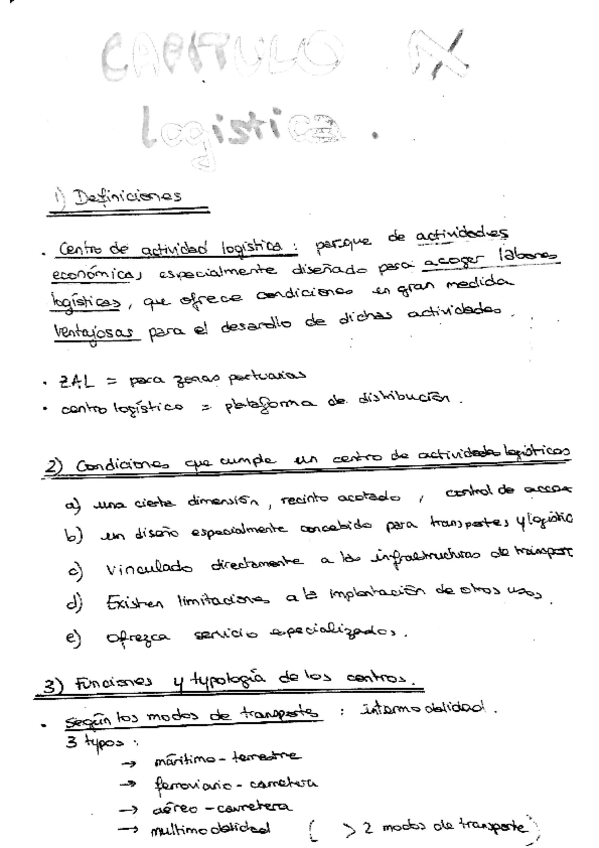 CAPITULO IX
Logistica.
1) Definiciones
• Centro de actividad logística : parque de actividades
económicas especialmente diseñado para acoger labores
logísticas, que ofrece condiciones en gran medida
ventajosas para el desarollo de dichas actividades.
• ZAL = para zonas portuarias
• centro logístico = plataforma de distribución.
2) Condiciones que cumple un centro de actividades logísticas
a) una cierta dimensión, recinto acotado, control de acces
b) un diseño especialmente concebido para transportes y logístic
c) vinculado directamente a las infraestructuras de transport
d) Existen limitaciones a la implantación de otros usos,
e) ofrezca servicio especializados.
3) Funciones y typología de los centros.
• Según los modos de transporte : intermodalidad.
3 typos :
→ máritimo - terrestre
→ ferroviario - carretera
→ aéreo - carretera
→ multimodalidad ( > 2 modos de transporte )